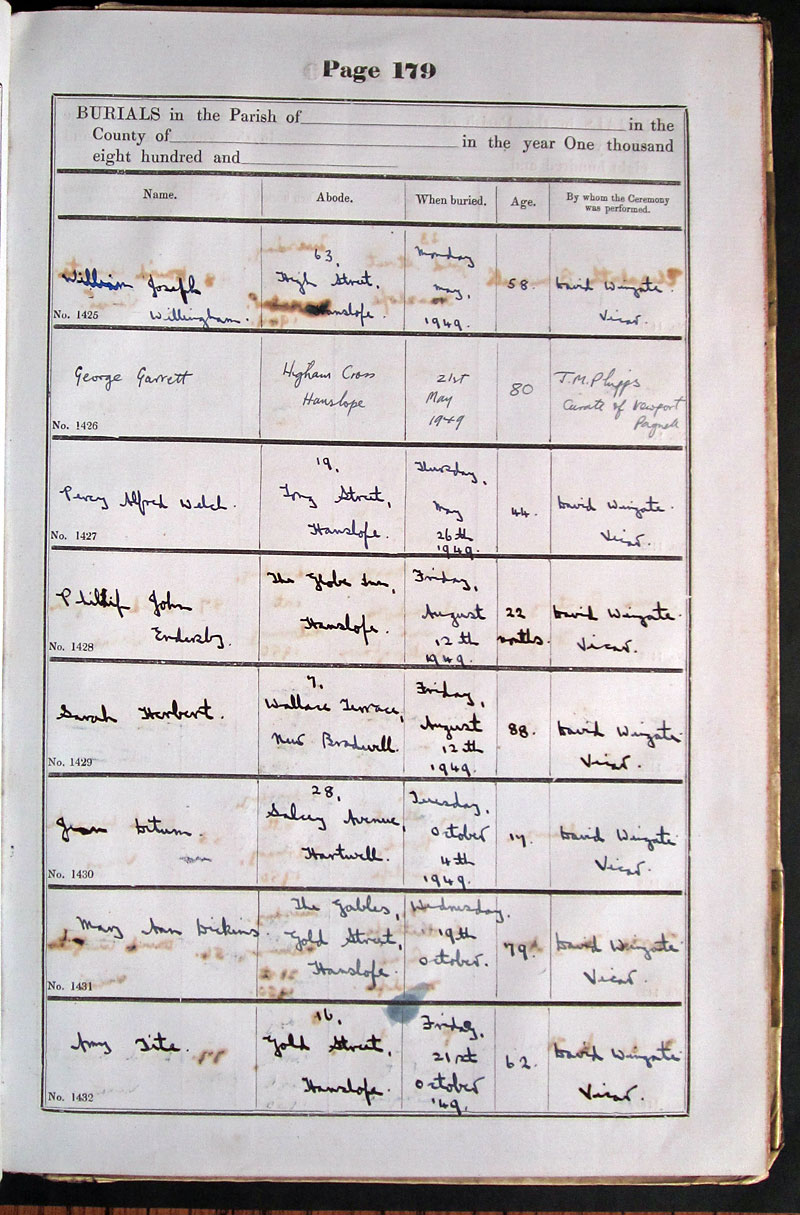 Page 179
BURIALS in the Parish of in the
County of in the year One thousand
eight hundred and
Name. Abode. When buried. Age. By whom the Ceremony was performed.
William Joseph
Willingham.
No. 1425
63,
High Street,
Hanslope.
Monday
May,
1949.
58
David Wingate.
Vicar.
George Garrett
No. 1426
Higham Cross
Hanslope
21st
May
1949
80
J.M. Phipps
Curate of Newport
Pagnell
Percy Alfred Welch.
No. 1427
19,
Long Street,
Hanslope.
Thursday,
May
26th
1949.
44.
David Wingate.
Vicar.
Phillip John
Endersby.
No. 1428
The Globe Inn,
Hanslope.
Friday,
August
12th
1949.
22
months.
David Wingate.
Vicar.
Sarah Herbert.
No. 1429
7,
Wallace Terrace,
New Bradwell.
Friday,
August
12th
1949.
88.
David Wingate.
Vicar.
Jean
No. 1430
28,
Salcey Avenue,
Hartwell.
Tuesday,
October
4th
1949.
David Wingate.
Vicar.
Mary Ann Dickins.
No. 1431
The Gables,
Gold Street,
Hanslope.
Wednesday.
19th
October.
79.
David Wingate.
Vicar.
Amy Tite.
No. 1432
16,
Gold Street,
Hanslope.
Friday,
21st
October
'49.
62.
David Wingate.
Vicar.